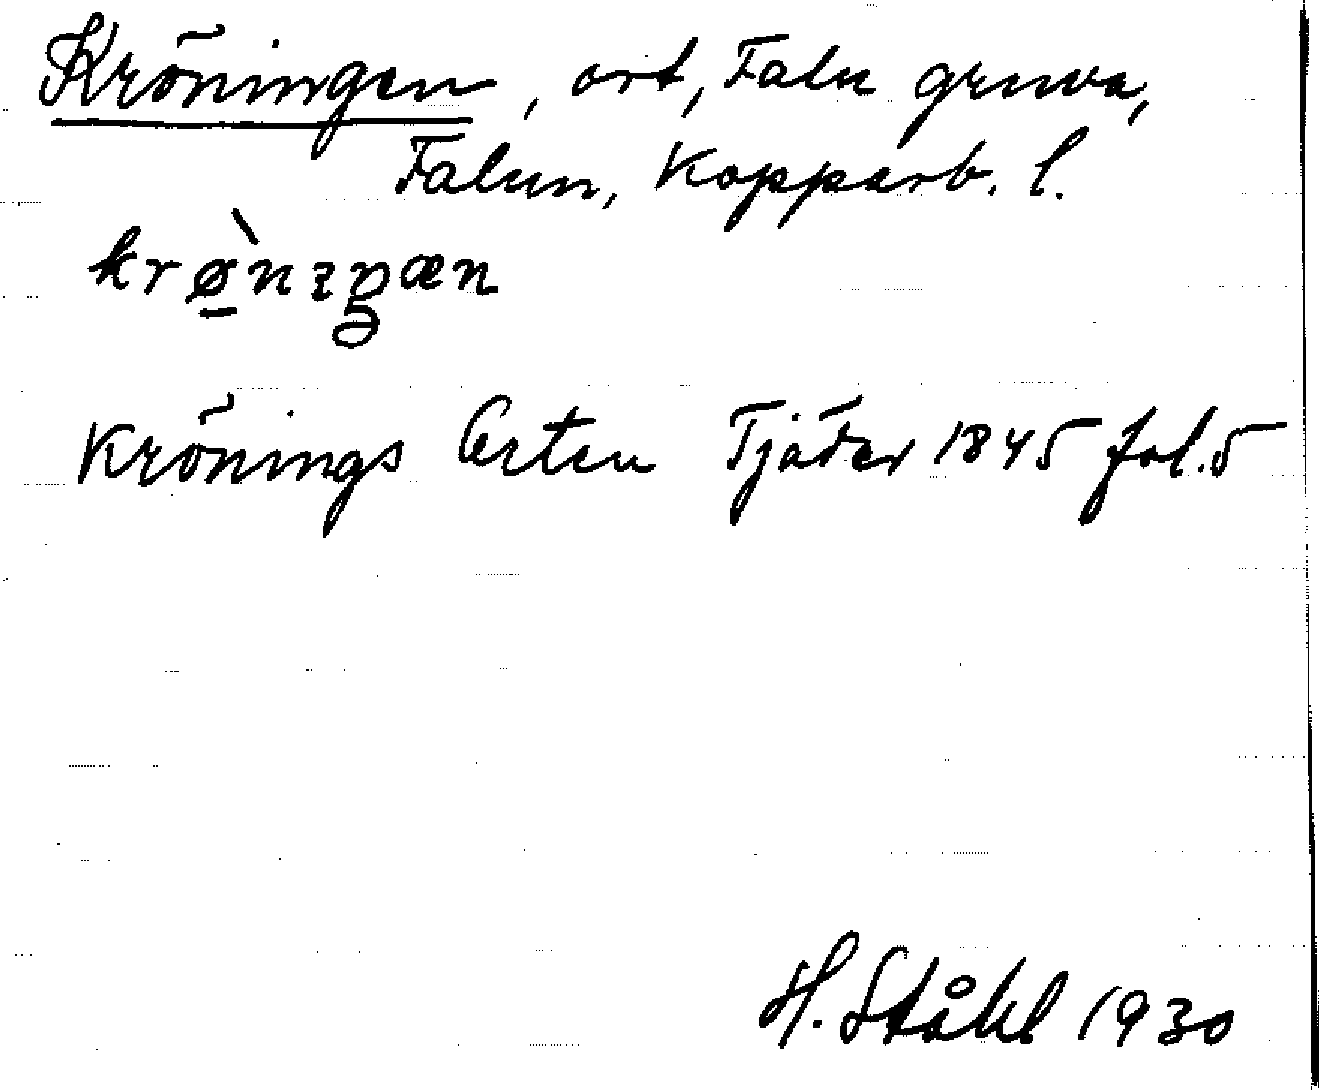 Kröningen, ort, Falu gruva,
Falun, Kopparb. l.
krø̱̀nıŋæn
Krönings Orten Tjäder 1845 fol. 5
H. Ståhl 1930